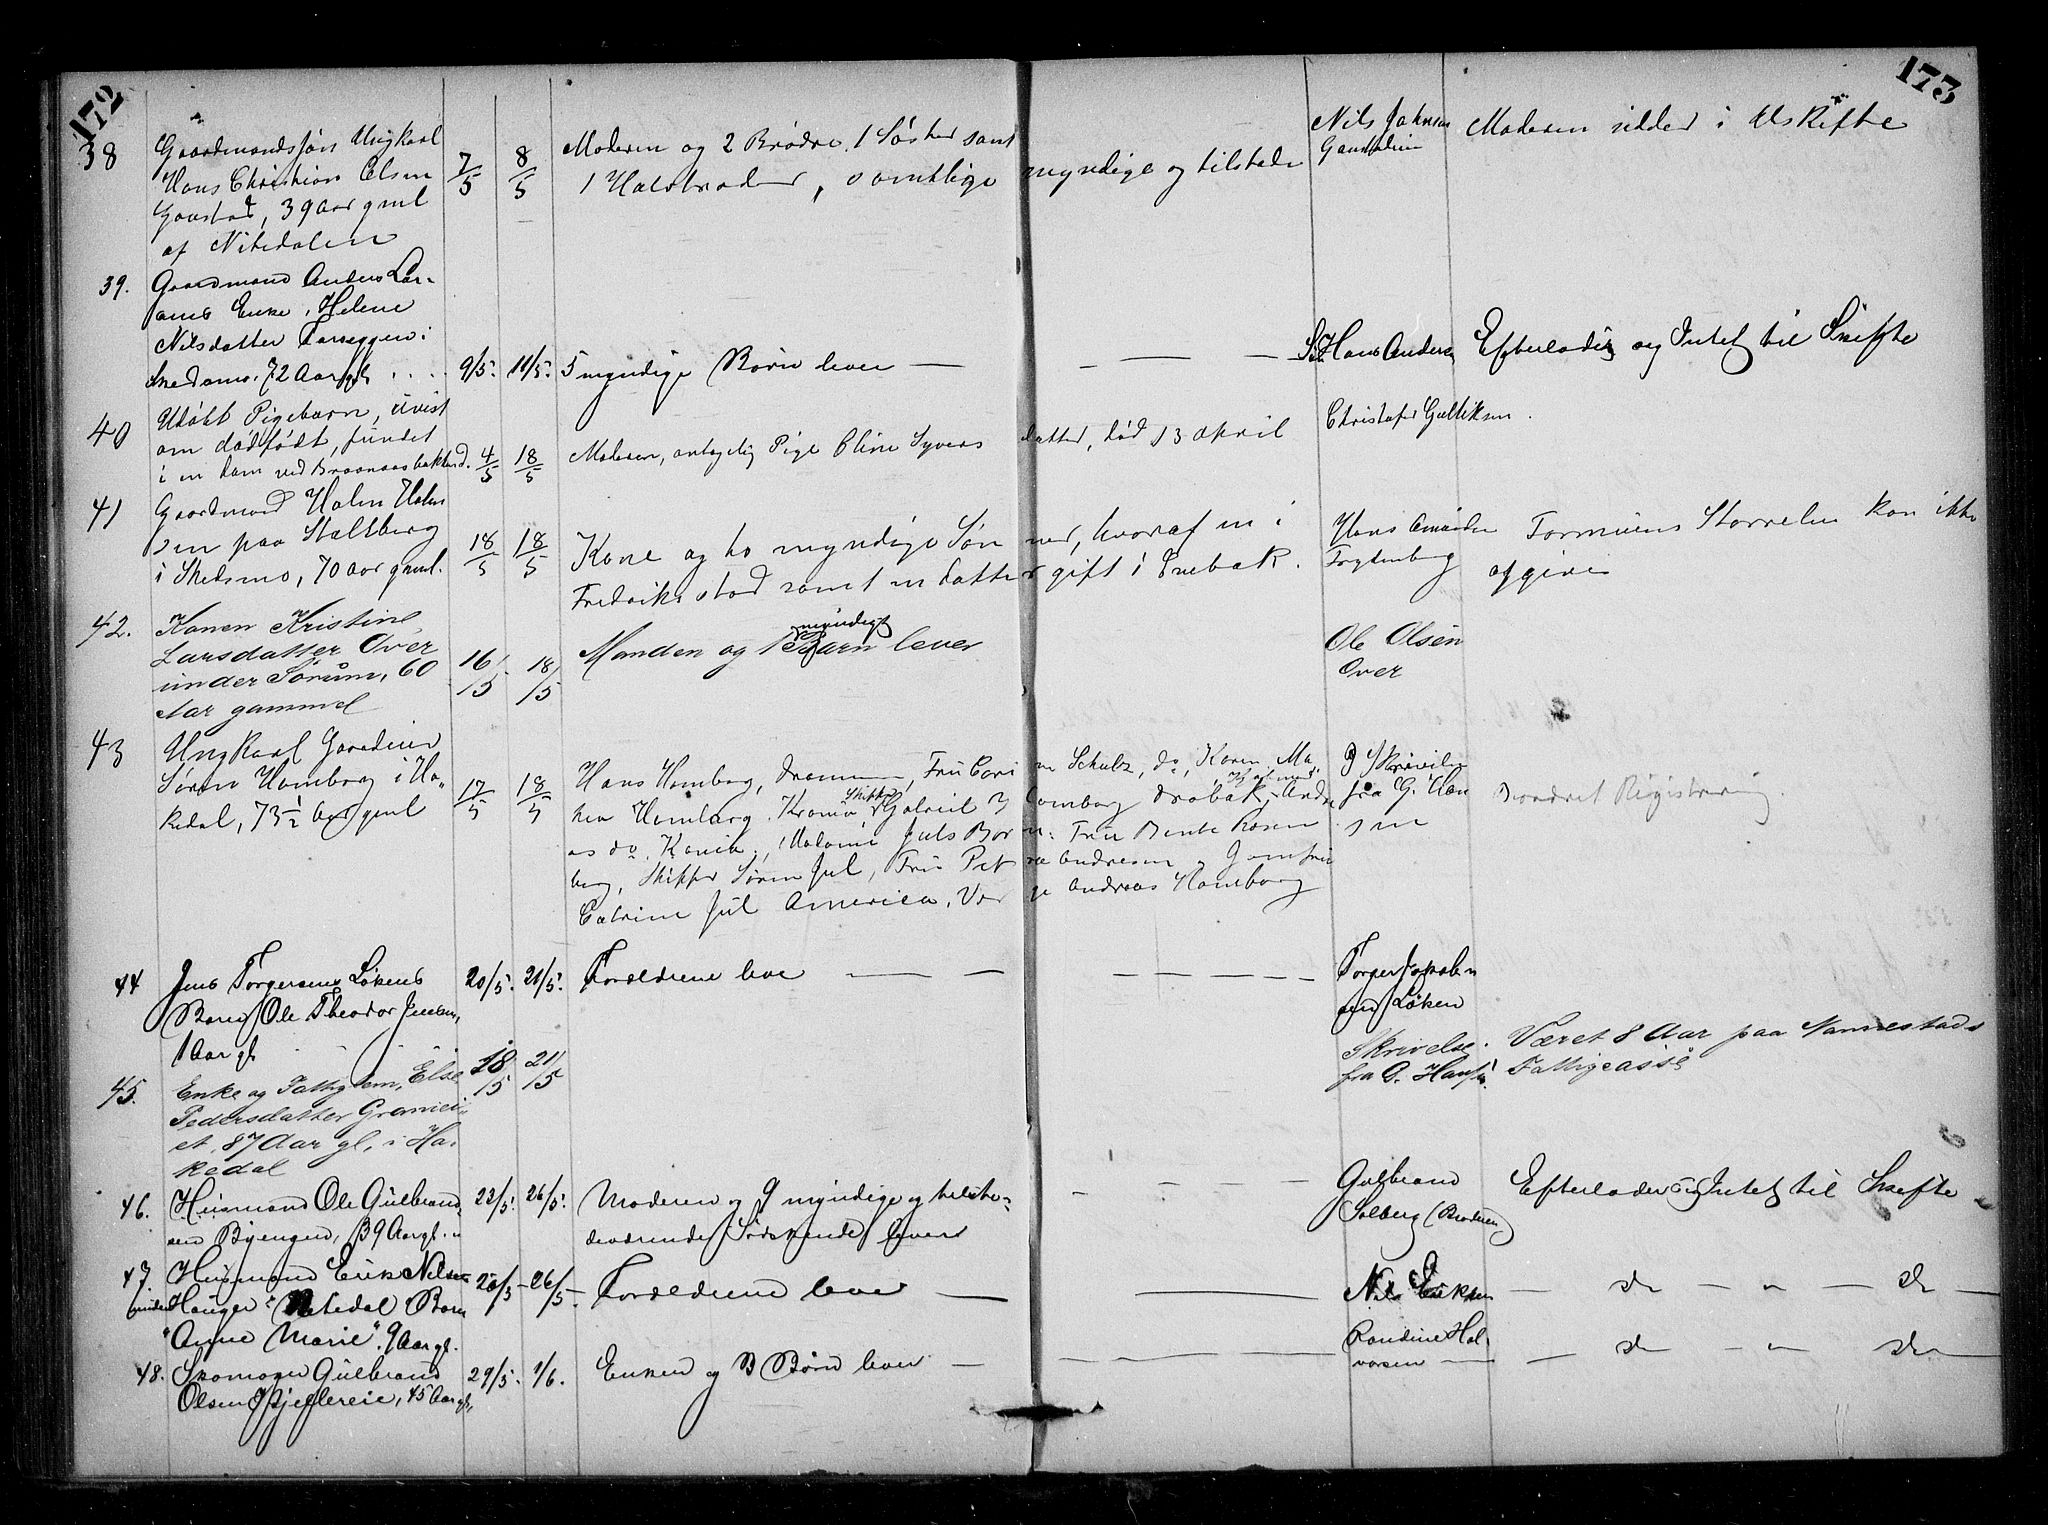 172
173
38
Gaardmandssøn Ungkarl
Hans Christian Olsen
Gaustad, 39 Aar gml
af Nitedalen
7/5
8/5
Moderen og 2 Brødre, 1 Søster samt
1 Halvbroder, samtlige myndige og tilstede
Nils Johnsen
Moderen sidder i Uskifte
39.
Gaardmand Anders Lar-
sens Enke, Helene
Nilsdatter i
Skedsmo. 72 Aar gl
9/5.
11/5.
5 myndige Børn lever
S. Hans Anders
Efterlader sig Intet til Skifte
40
Udøbt Pigebarn, uvist
om dødfødt, fundet
i en Dam ved Braanaasbakken
4/5
18/5
Moderen, antagelig Pige Oline Syversdatter, død 13 April
Christofer Gulliksen.
41
Gaardmand Halvor Halvor
sen paa Staltberg
i Skedsmo, 70 Aar gml.
18/5
18/5
Kone og to myndige Sønner, hvoraf en i
Fredrikstad samt en datter gift i Enebak.
Hans Amundsen
Frydenberg
Formuens Størrelse kan ikke
opgives
42.
Konen Kristine
Larsdatter Over
under Sørum, 60
Aar gammel
16/5
18/5
Manden og 1 myndigt Barn lever
Ole Olsen
Over
43
Ungkarl Gaardeier
Søren Homborg i Ha-
kedal, 73 1/2 Aar gml
17/5
18/5
Hans Homborg, Drammen, Fru Carine Schulz, do, Karen Ma-
thea Homborg, Skipper Gabriel Homborg Drøbak, Andre
as do. Juls Børn: Fru Bente Rosen
berg, Skipper Søren Jul, Fru Petrea Andresen og Jomfru
Catrine Jul America, Værge Andreas Homborg
Skrivelse
fra G. Han
sen
Registrering.
44
Jens Torgersens Løkens
Barn Ole Theodor Jensen,
1 Aar gl
20/5.
21/5.
Forældrene leve
Torger Jakobs
sen Løken
45.
Enke og Fattiglem, Else
Pedersdatter Gramei-
et, 87 Aar gl, i Ha-
kedal
18/5
21/5
Skrivelse
fra G. Hansen
Været 8 Aar paa Nannestads
Fattigcasse
46.
Husmand Ole Gulbrand-
sen Byengen, 39 Aar gl.
23/5.
26/5.
Moderen og 9 myndige og tilste-
deværende Sødskende lever
Gulbrand
Solberg (Broderen)
Efterlader sig Intet til Skifte
47.
Husmand Erik Nilsen
under Hauger i Nitedal Barn
"Anne Marie". 9 Aar gl.
26/5
Forældrene leve
Nils Eriksen
do — " — do
48.
Skomager Gulbrand
Olsen Kjellereie, 45 Aar gl,
29/5.
1/6.
Enken og 3 Børn lever
Randine Hal-
vorsen
do — " — do